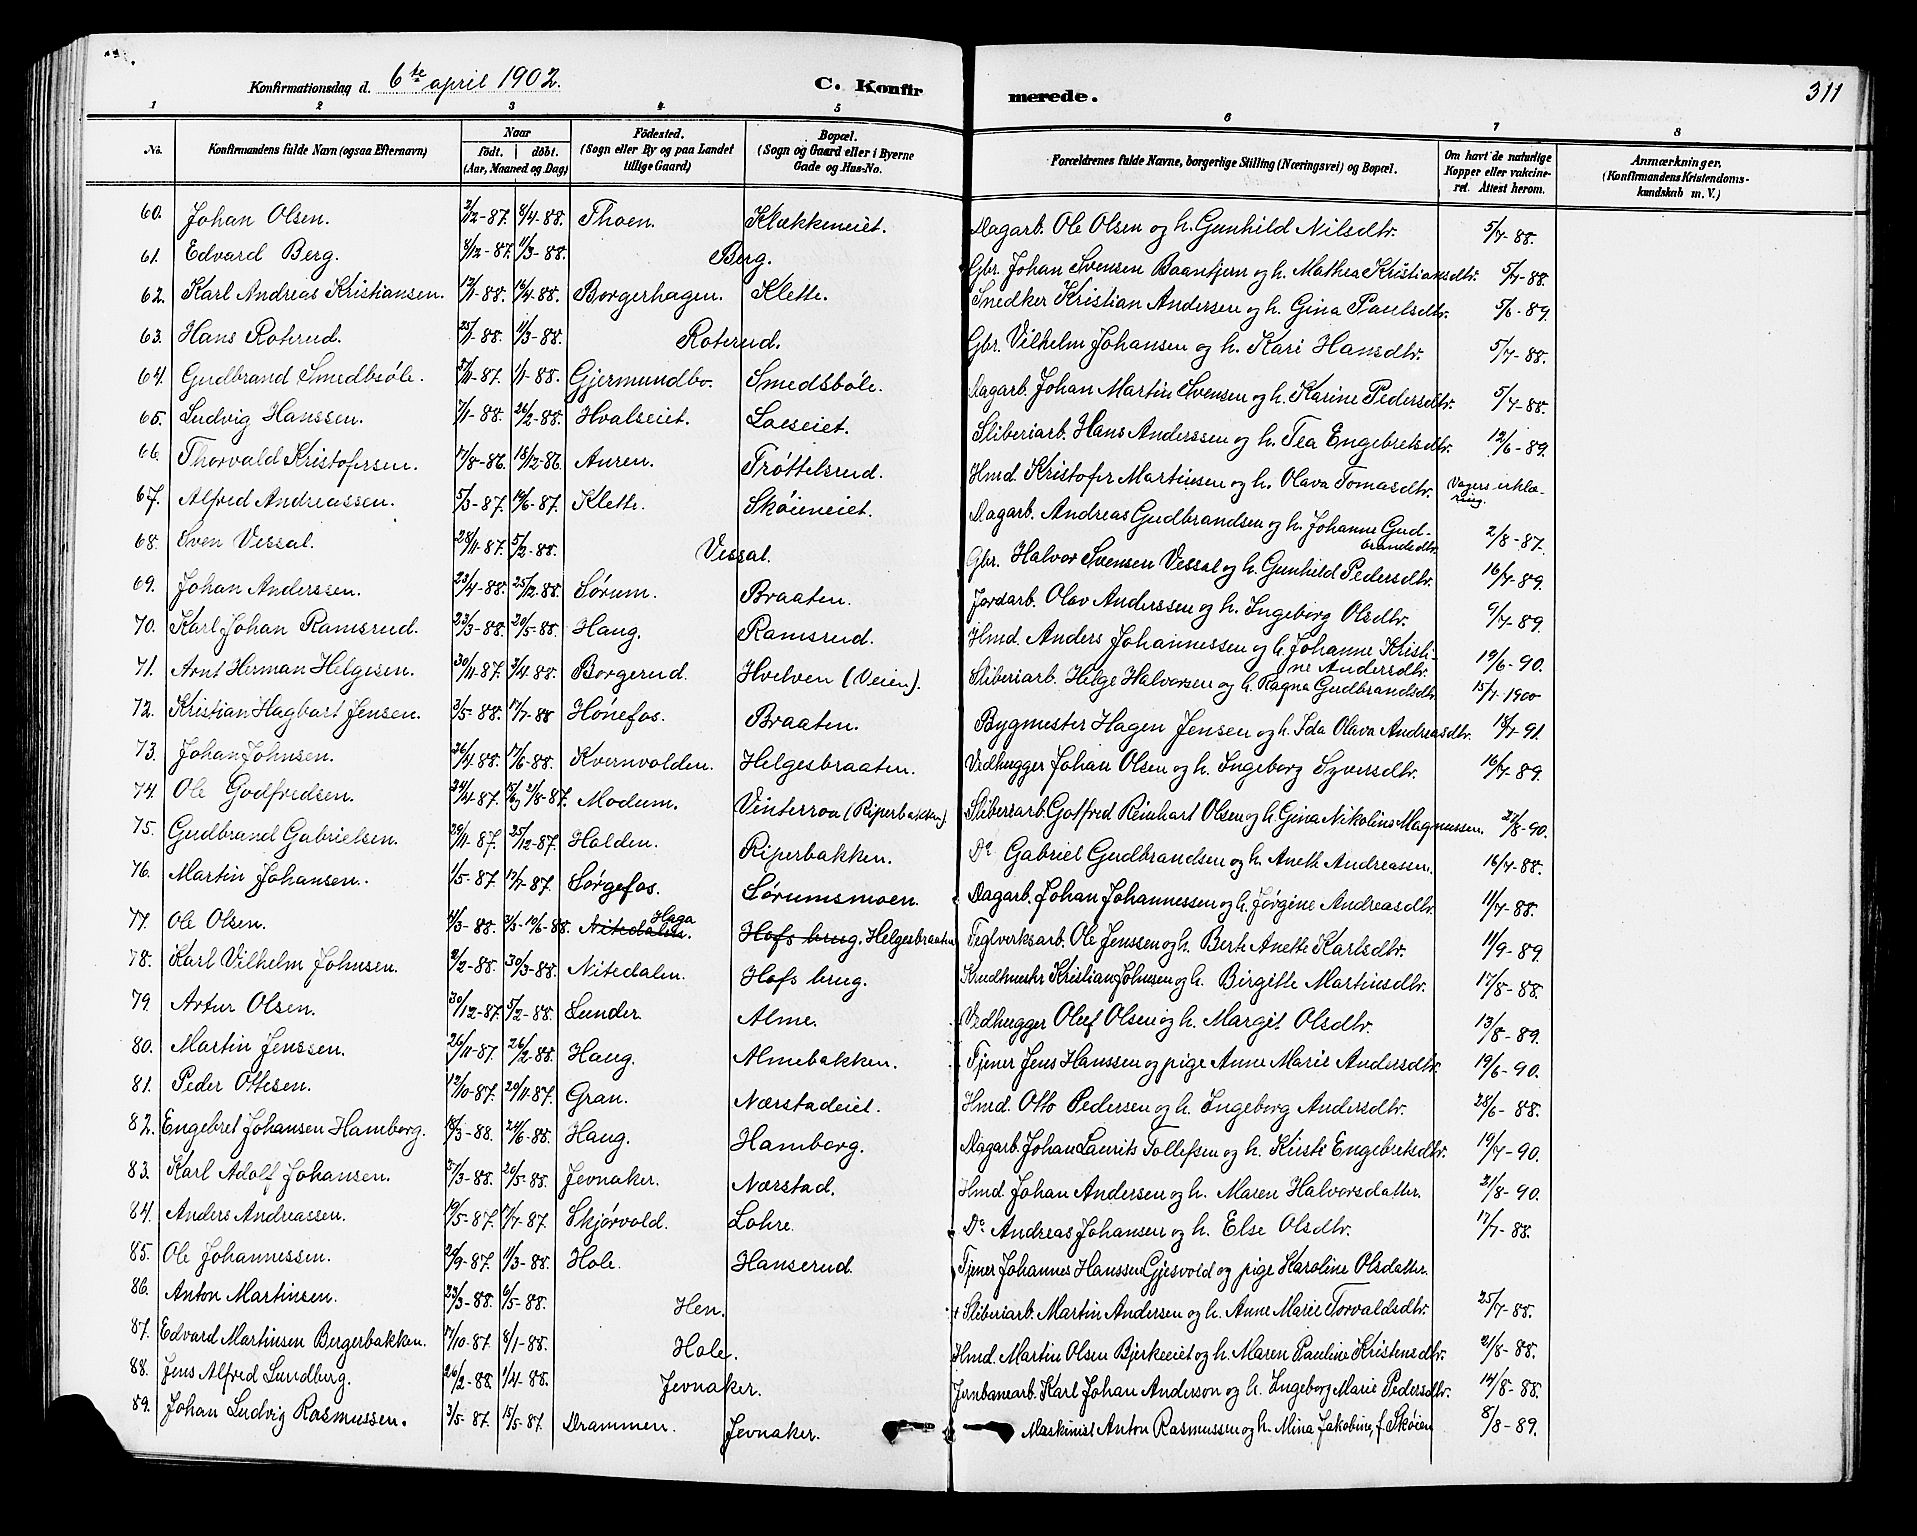 Konfirmationsdag d. 6te april 1902.
C. Konfirmerede.
311
1 2 3 4 5 6 7 8
No. Konfirmandens fulde Navn (ogsaa Efternavn) Naar födt. döbt. (Aar, Maaned og Dag) Födested. (Sogn eller By og paa Landet tillige Gaard) Bopæl. (Sogn og Gaard eller i Byerne Gade og Hus-No. Forældrenes fulde Navne, borgerlige Stilling (Næringsvei) og Bopæl. Om havt de naturlige Kopper eller vakcineret. Attest herom. Anmærkninger. (Konfirmandens Kristendomskundskab m. V.)
60. Johan Olsen. 2/12-87. 8/4-88. Thoen. Klækkeneiet. Dagarb. Ole Olsen og h. Gunhild Nilsdtr. 5/7-88.
61. Edvard Berg. 8/12-87. 11/3-88. Berg. Gbr. Johan Svensen Baantjern og h. Mathea Kristiansdtr. 5/7-88.
62. Karl Andreas Kristiansen. 12/1-88. 16/4-88. Borgerhagen. Klette. Snedker Kristian Andersen og h. Gina Paulsdtr. 5/6-89.
63. Hans Roterud. 25/1-88. 11/3-88. Roterud. Gbr. Vilhelm Johansen og h. Kari Hansdtr. 5/7-88.
64. Gudbrand Smedsböle. 87. 1/1-88. Gjermundbo. Smedsböle. Dagarb. Johan Martin Svensen og h. Karine Pedersdtr. 5/7-88.
65. Ludvig Hanssen. 7/1-88. 26/2-88. Hvalseiet. Loeseiet. Sliberiarb. Hans Anderssen og h. Tea Engebretsdtr. 12/6-89.
66. Thorvald Kristofersen. 17/8-86. 18/12-86. Auren. Tröttelsrud. Hmd. Kristofer Martinsen og h. Olava Tomasdtr. Vagers erklæring.
67. Alfred Andreassen. 5/3-87. 19/6-87. Klette. Skøieneiet. Dagarb. Andreas Gudbrandsen og h. Johanne Gudbrandsdtr. 2/8-87.
68. Sven Vessal. 28/11-87. 5/2-88. Vessal. Gbr. Halvor Svensen Vessal og h. Gunhild Pedersdtr. 16/7-89.
69. Johan Anderssen. 23/4-88. 25/12-88. Sørum. Braaten. Jordarb. Olav Anderssen og h. Ingeborg Olsdtr. 9/7-89.
70. Karl Johan Ramsrud. 23/3-88. 20/5-88. Haug. Ramsrud. Hmd. Anders Johannessen og h. Johanne Kristine Andersdtr. 19/6-90.
71. Arnt Herman Helgesen. 30/11-87. 3/4-88. Borgerud. Hvelven (Veien). Sliberiarb. Helge Halvorsen og h. Ragna Gudbrandsdtr. 15/7-1900
72. Kristian Hagbart Jensen. 3/5-88. 17/7-88 Hønefos. Braaten. Bygmester Hagen Jensen og h. Ida Olava Andreasdtr. 18/7-91.
73. Johan Johnsen. 26/4-88. 17/6-88. Kvernvolden. Helgesbraaten. Vedhugger Johan Olsen og h. Ingeborg Syversdtr. 16/7-89.
74. Ole Godfredsen. 24/4-87. 21/8-87. Modum. Vinterroa (Riperbakken). Sliberiarb. Gotfred Reinhart Olsen og h. Gina Nikoline Magnussen. 8-90.
75. Gudbrand Gabrielsen. 29/11-87. 25/12-87. Halden. Riperbakken. Do Gabriel Gudbrandsen og h. Aneth Andreassen. 16/7-88.
76. Martin Johansen. 1/5-87. 17/7-87. Sørgefos. Sørumsmoen. Dagarb. Johan Johannessen og h. Jørgine Andreasdtr. 11/7-88.
77. Ole Olsen. 4/3-88. 3/5-19/6-88. Nitedalen. Haga Hofs brug. Helgesbraaten Teglverksarb. Ole Jenssen og h. Berte Anette Karlsdtr. 11/9-89.
78. Karl Vilhelm Johnsen. 2/2-88. 30/3-88. Nitedalen. Hofs brug. Kristian Johnsen og h. Birgitte Martinsdtr. 17/8-88.
79. Artur Olsen. 30/12-87. 5/2-88. Lunder. Alme. Vedhugger Oluf Olsen og h. Margit Olsdtr. 13/8-89.
80. Martin Jenssen. 26/11-87. 26/2-88. Haug. Almebakken. Tjener Jens Hanssen og pige Anne Marie Andersdtr. 19/6-90.
81. Peder Ottesen. 12/10-87. 20/11-87. Gran. Nærstadeiet. Hmd. Otto Pedersen og h. Ingeborg Andersdtr. 28/6-88.
82. Engebret Johansen Hamborg. 18/3-88. 24/6-88. Haug. Hamborg. Dagarb. Johan Laurits Tollefsen og h. Kirsti Engebretsdtr. 19/7-90.
83. Karl Adolf Johansen. 27/3-88. 20/5-88. Jevnaker. Nærstad. Hmd. Johan Andersen og h. Maren Halvorsdatter. 21/8-90.
84. Anders Andreassen. 19/5-87. 17/7-87. Skjørvold. Lohre. Do Andreas Johansen og h. Else Olsdtr. 17/7-88.
85. Ole Johannessen. 20/9-87. 11/3-88. Hole. Hanserud. Tjener Johannes Hanssen Gjesvold og pige Karoline Olsdatter.
86. Anton Martinsen. 23/3-88. 6/5-88. Hen. + Sliberiarb. Martin Andersen og h. Anne Marie Torvaldsdtr. 25/7-88.
87. Edvard Martinsen Bergerbakken. 17/10-87. 8/1-88. Hole. Hmd. Martin Olsen Bjerkeeiet og h. Maren Pauline Kristensdtr. 21/8-88.
88. Jens Alfred Lundberg. 26/2-88. 1/4-88. Jevnaker. Jernbanearb. Karl Johan Anderson og h. Ingeborg Marie Pedersdtr. 14/8-88.
89. Johan Ludvig Rasmussen. 3/5-87. 15/5-87. Drammen. Jevnaker. Maskinist Anton Rasmussen og h. Mina Jakobine, f. Skøien 8/8-89.